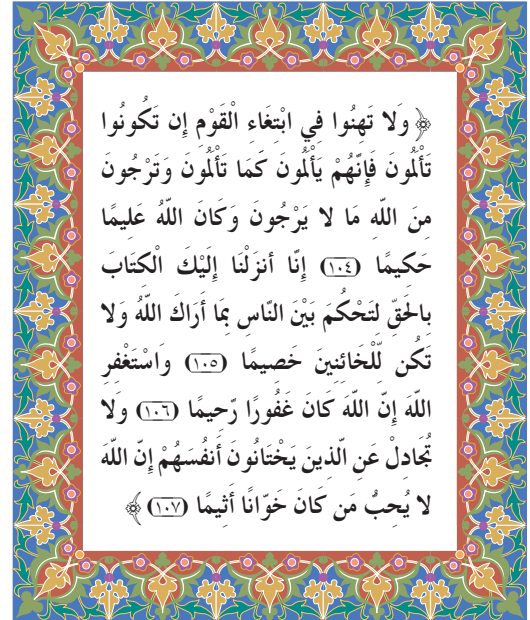 ﴿ وَلا تَهِنُوا فِي ابْتِغَاءِ الْقَوْمِ إِن تَكُونُوا
تَأْلَمُونَ فَإِنَّهُمْ يَأْلَمُونَ كَمَا تَأْلَمُونَ وَتَرْجُونَ
مِنَ اللَّهِ مَا لا يَرْجُونَ وَكَانَ اللَّهُ عَلِيمًا
حَكِيمًا (١٠٤) إِنَّا أَنزَلْنَا إِلَيْكَ الْكِتَابَ
بِالْحَقِّ لِتَحْكُمَ بَيْنَ النَّاسِ بِمَا أَرَاكَ اللَّهُ وَلا
تَكُن لِّلْخَائِنِينَ خَصِيمًا (١٠٥) وَاسْتَغْفِرِ
اللَّهَ إِنَّ اللَّهَ كَانَ غَفُورًا رَّحِيمًا (١٠٦) وَلا
تُجَادِلْ عَنِ الَّذِينَ يَخْتَانُونَ أَنفُسَهُمْ إِنَّ اللَّهَ
لا يُحِبُّ مَن كَانَ خَوَّانًا أَثِيمًا (١٠٧) ﴾